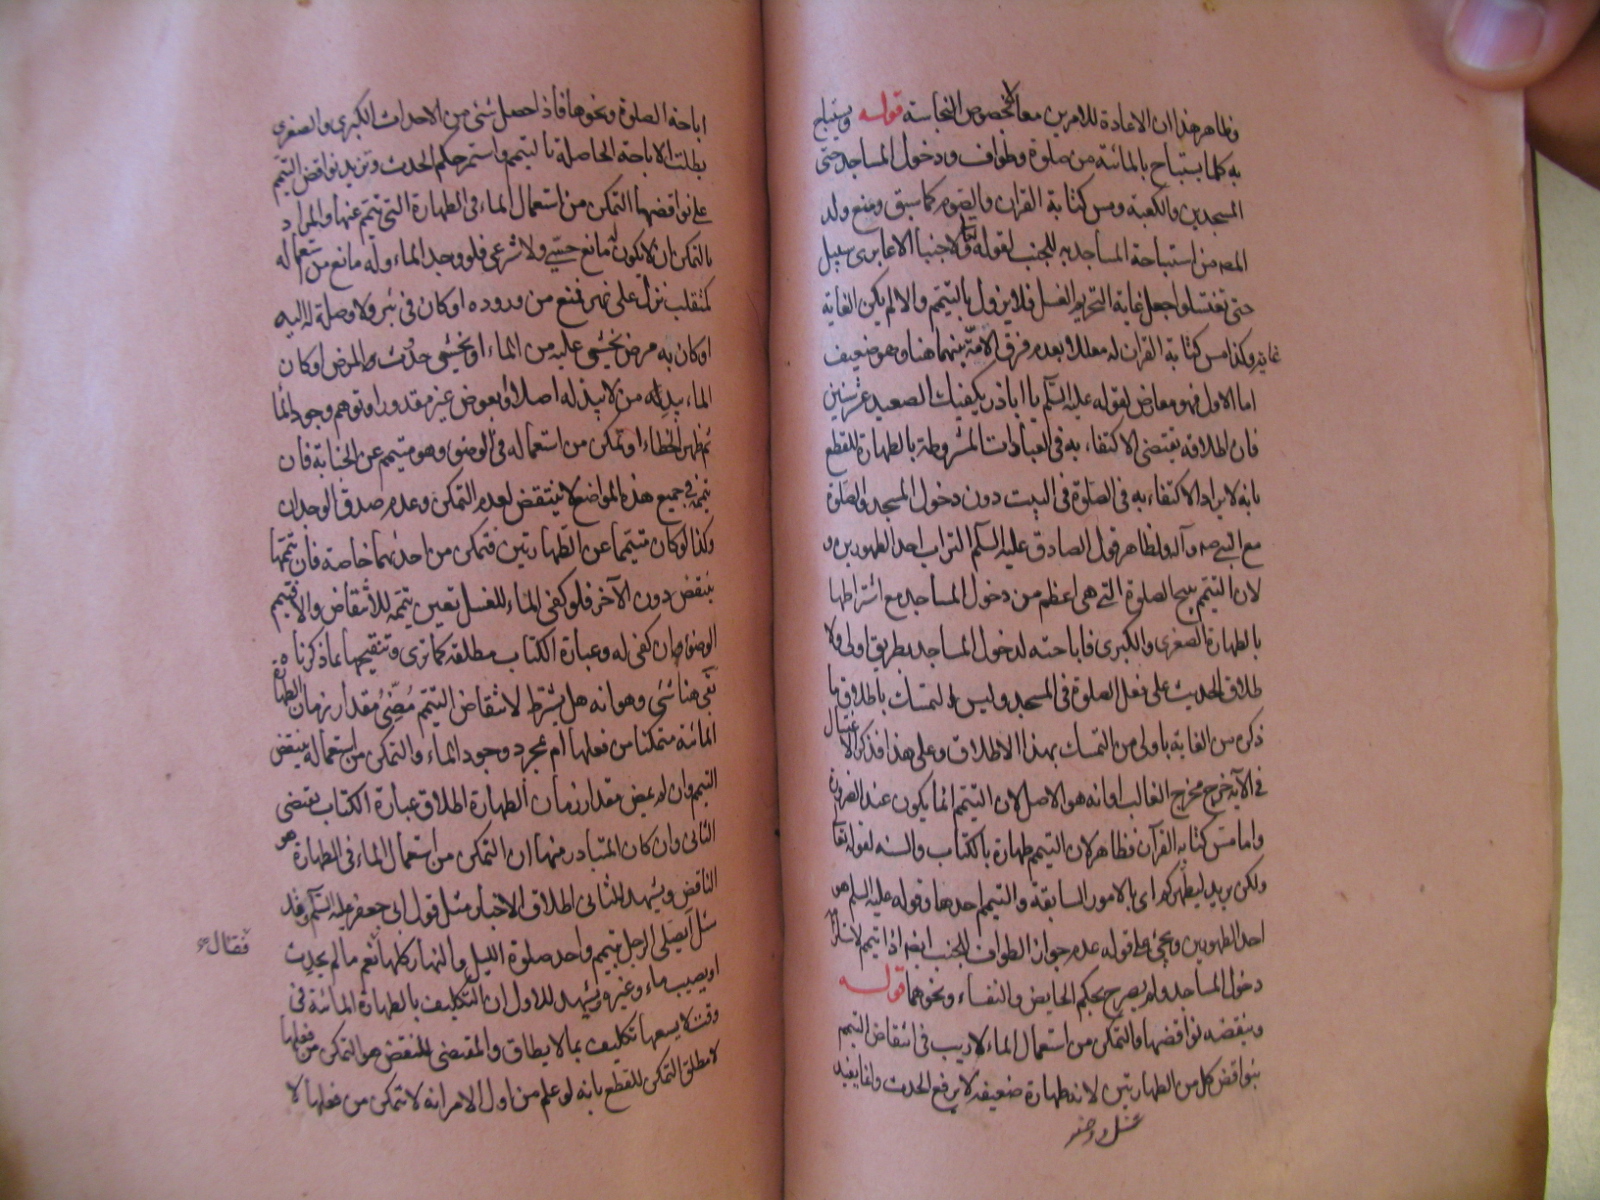 وظاهر هذا ان الاعادة للامرين معا لا لخصوص النجاسة قوله ويستباح
به كلما يستباح بالمائية من صلوة وطواف ودخول المساجد حتى
المسجدين والكعبة ومس كتابة القران والصوم كما سبق ومنع ولد
المصـ من استباحة المساجد به للجنب لقوله تعالى ولا جنبا الا عابري سبيل
حتى تغتسلوا جعل غاية التحريم الغسل فلا يزول بالتيمم والا لم يكن الغاية
غاية وكذا مس كتابة القران له معللا بعدم فرق الامة بينهما هنا وهو ضعيف
اما الاول فهو معارض لقوله عليه السلم يا اباذر يكفيك الصعيد عشر سنين
فان اطلاقه يقتضي الاكتفاء به في العبادات المشروطة بالطهارة للقطع
بانه لا يراد الاكتفاء به في الصلوة في البيت دون دخول المسجد والصلوة
مع النبي صـ وآله ولظاهر قول الصادق عليه السلم التراب احد الطهورين و
لان التيمم يبيح الصلوة التي هي اعظم من دخول المساجد مع اشتراطها
بالطهارة الصغرى والكبرى فاباحته لدخول المساجد بطريق اولى ولا
طلاق الحديث على فعل الصلوة في المسجد وليس التمسك باطلاق ما
ذكر من الغاية باولى من التمسك بهذا الاطلاق وعلى هذا فذكر الاغتسال
في الآية خرج مخرج الغالب او انه هو الاصل لان التيمم انما يكون عند الضرورة
واما مس كتابة القرآن فظاهر لان التيمم طهارة بالكتاب والسنه لقوله تعالى
ولكن يريد ليطهركم اي بالامور السابقة والتيمم احدها وقوله عليه السلم هو
احد الطهورين ويجئ على قوله عدم جواز الطواف للجنب ايضا اذا تيمم لاستلزامه
دخول المساجد ولم يصرح بحكم الحايض والنفساء ونحوهما قوله
وينقضه نواقضها والتمكن من استعمال الماء لا ريب في انتقاض التيمم
بنواقض كل من الطهارتين لانه طهارة ضعيفة لا يرفع الحدث وانما يفيد
اباحة الصلوة ونحوها فاذا حصل شئ من الاحداث الكبرى والصغرى
بطلت الاباحة الحاصلة بالتيمم واستمر حكم الحدث وتزيد نواقض التيمم
على نواقضهما التمكن من استعمال الماء في الطهارة التي تيمم عنها والمراد
بالتمكن ان لا يكون ثم مانع حسي ولا شرعي فلو وجد الماء وله مانع من استعماله
كمتغلب نزل على نهر فمنع من وروده او كان في بئر ولا وصلة له اليه
او كان به مرض يخشى عليه من الماء او يخشى حدوث المرض او كان
الماء بيد من لا يبذله اصلا او بعوض غير مقدور او توهم وجود الماء
ثم ظهر الخطاء او تمكن من استعماله في الوضوء وهو متيمم عن الجنابة فان
تيممه في جميع هذه المواضع لا ينتقض لعدم التمكن وعدم صدق الوجدان
وكذا لو كان متيمما عن الطهارتين فتمكن من احديهما خاصة فان تيممها
ينتقض دون الآخر فلو كفى الماء للغسل تعين تيممه للانتقاض والا فتيمم
الوضوء ان كفى له وعبارة الكتاب مطلقة كما ترى وتنقيحها بما ذكرناه
بقي هنا شئ وهو انه هل يشترط لانتقاض التيمم مضي مقدار زمان الطهارة
المائية متمكنا من فعلها ام مجرد وجود الماء والتمكن من استعماله ينقض
التيمم وان لم يمض مقدار زمان الطهارة اطلاق عبارة الكتاب يقتضي
الثاني وان كان المتبادر منها ان التمكن من استعمال الماء في الطهارة هو
الناقض ويشهد للثاني اطلاق الاخبار مثل قول ابي جعفر عليه السلم وقد
سئل ايصلي الرجل بتيمم واحد صلوة الليل والنهار كلها نعم ما لم يحدث
فقال ع
او يصيب ماء وغيره ويشهد للاول ان التكليف بالطهارة المائية في
وقت لا يسعها تكليف بما لا يطاق والمقتضي للنقض هو التمكن من فعلها
لا مطلق التمكن للقطع بانه لو علم من اول الامر انه لا يتمكن من فعلها لا